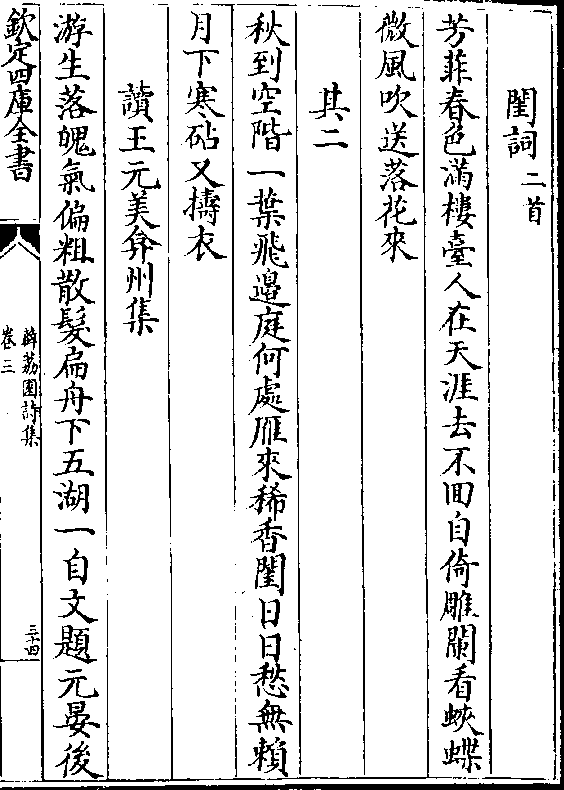 閨詞二首
芳菲春色滿樓臺人在天涯去不回自倚雕闌看蛺蝶
微風吹送落花來
其二
秋到空階一葉飛邉庭何處雁來稀香閨日日愁無賴
月下寒砧又擣衣
讀王元美弇州集
游生落魄氣偏粗散髮扁舟下五湖一自文題元晏後
欽定四庫全書
薜荔園詩集
卷三
三十四